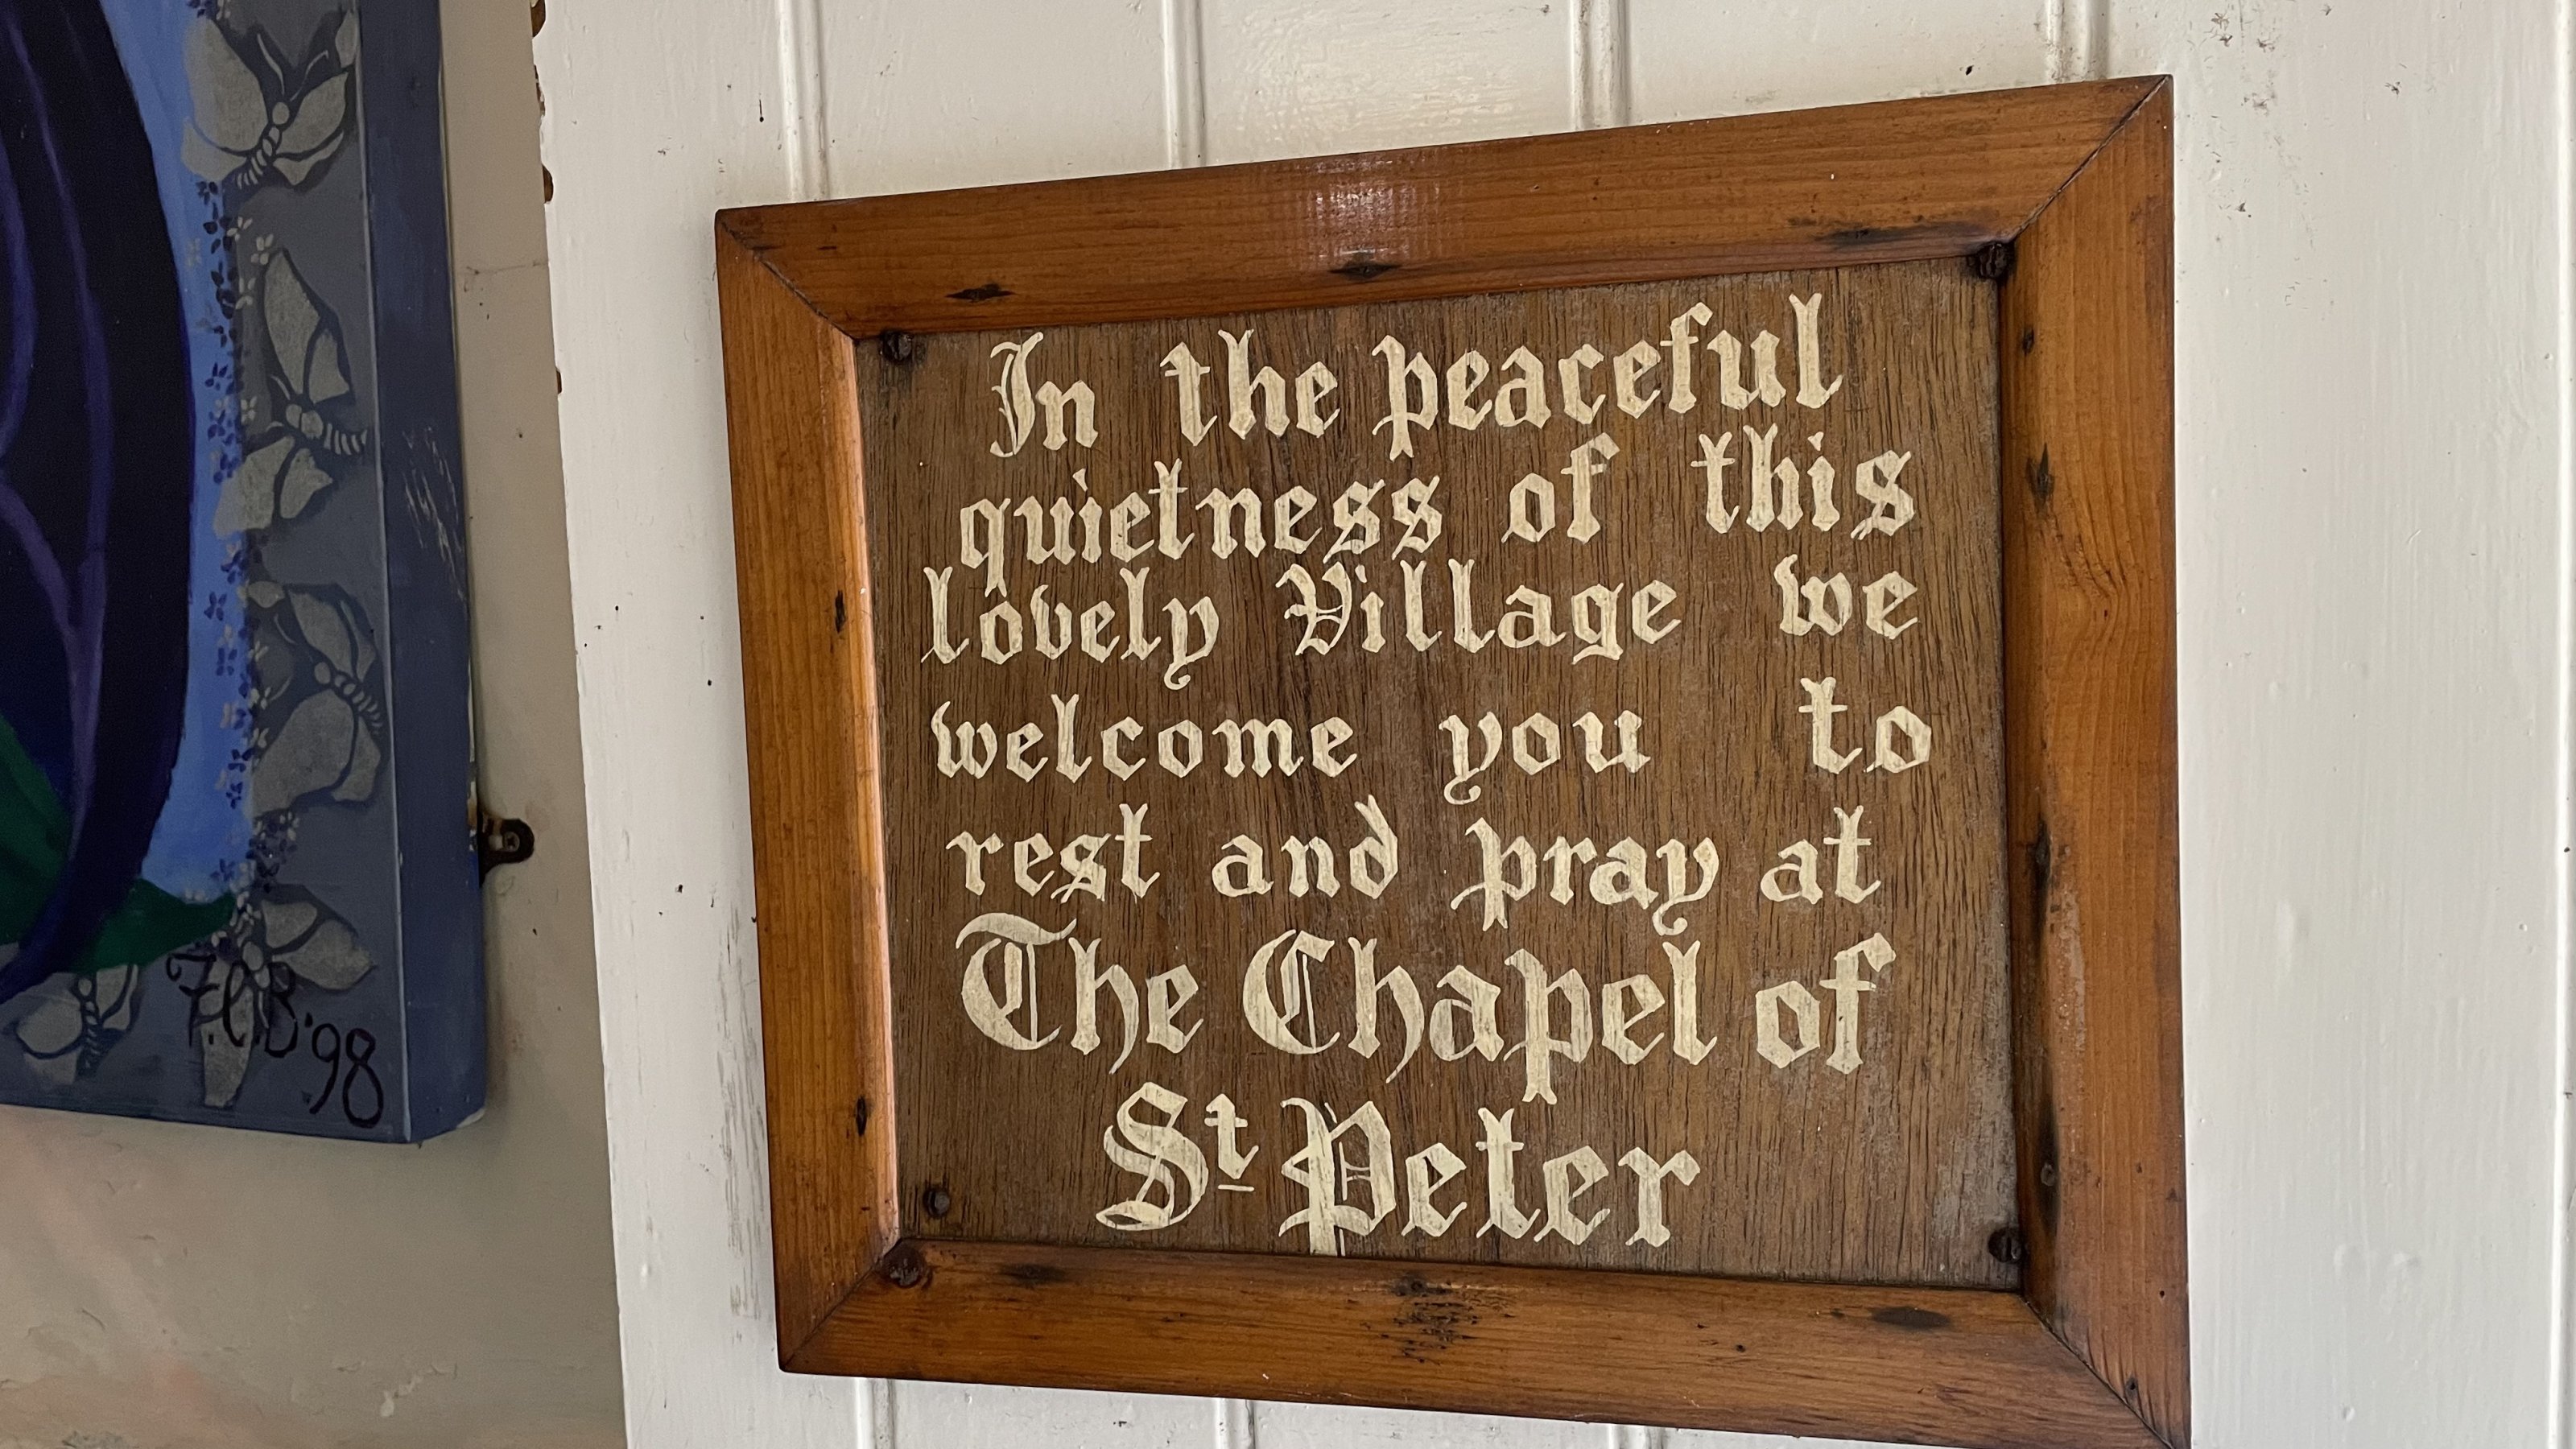 In the peaceful
quietness of this
lovely Village we
welcome you to
rest and pray at
The Chapel of
St Peter
F.C.B '98